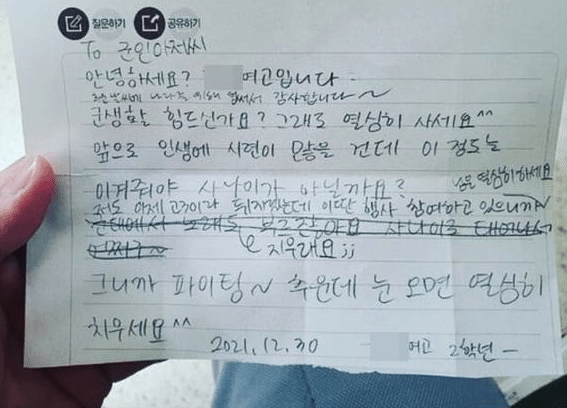 질문하기 공유하기
To 군인아저씨
안녕하세요? 여고입니다 -
추운날씨에 나라를 위해 힘써서 감사합니다~
군생활 힘드신가요? 그래도 열심히 사세요^^
앞으로 인생에 시련이 많을 건데 이 정도는
이겨줘야 사나이가 아닐까요?
저도 이제 고3이라 뒤지겠는데 이딴 행사 참여하고 있으니까~
님은 열심히하세요
군대에서 노래도 부르잖아요 사나이로 태어나서
어쩌구~
지우래요;;
그니까 파이팅~ 추운데 눈 오면 열심히
치우세요^^
2021.12.30 여고 2학년 -